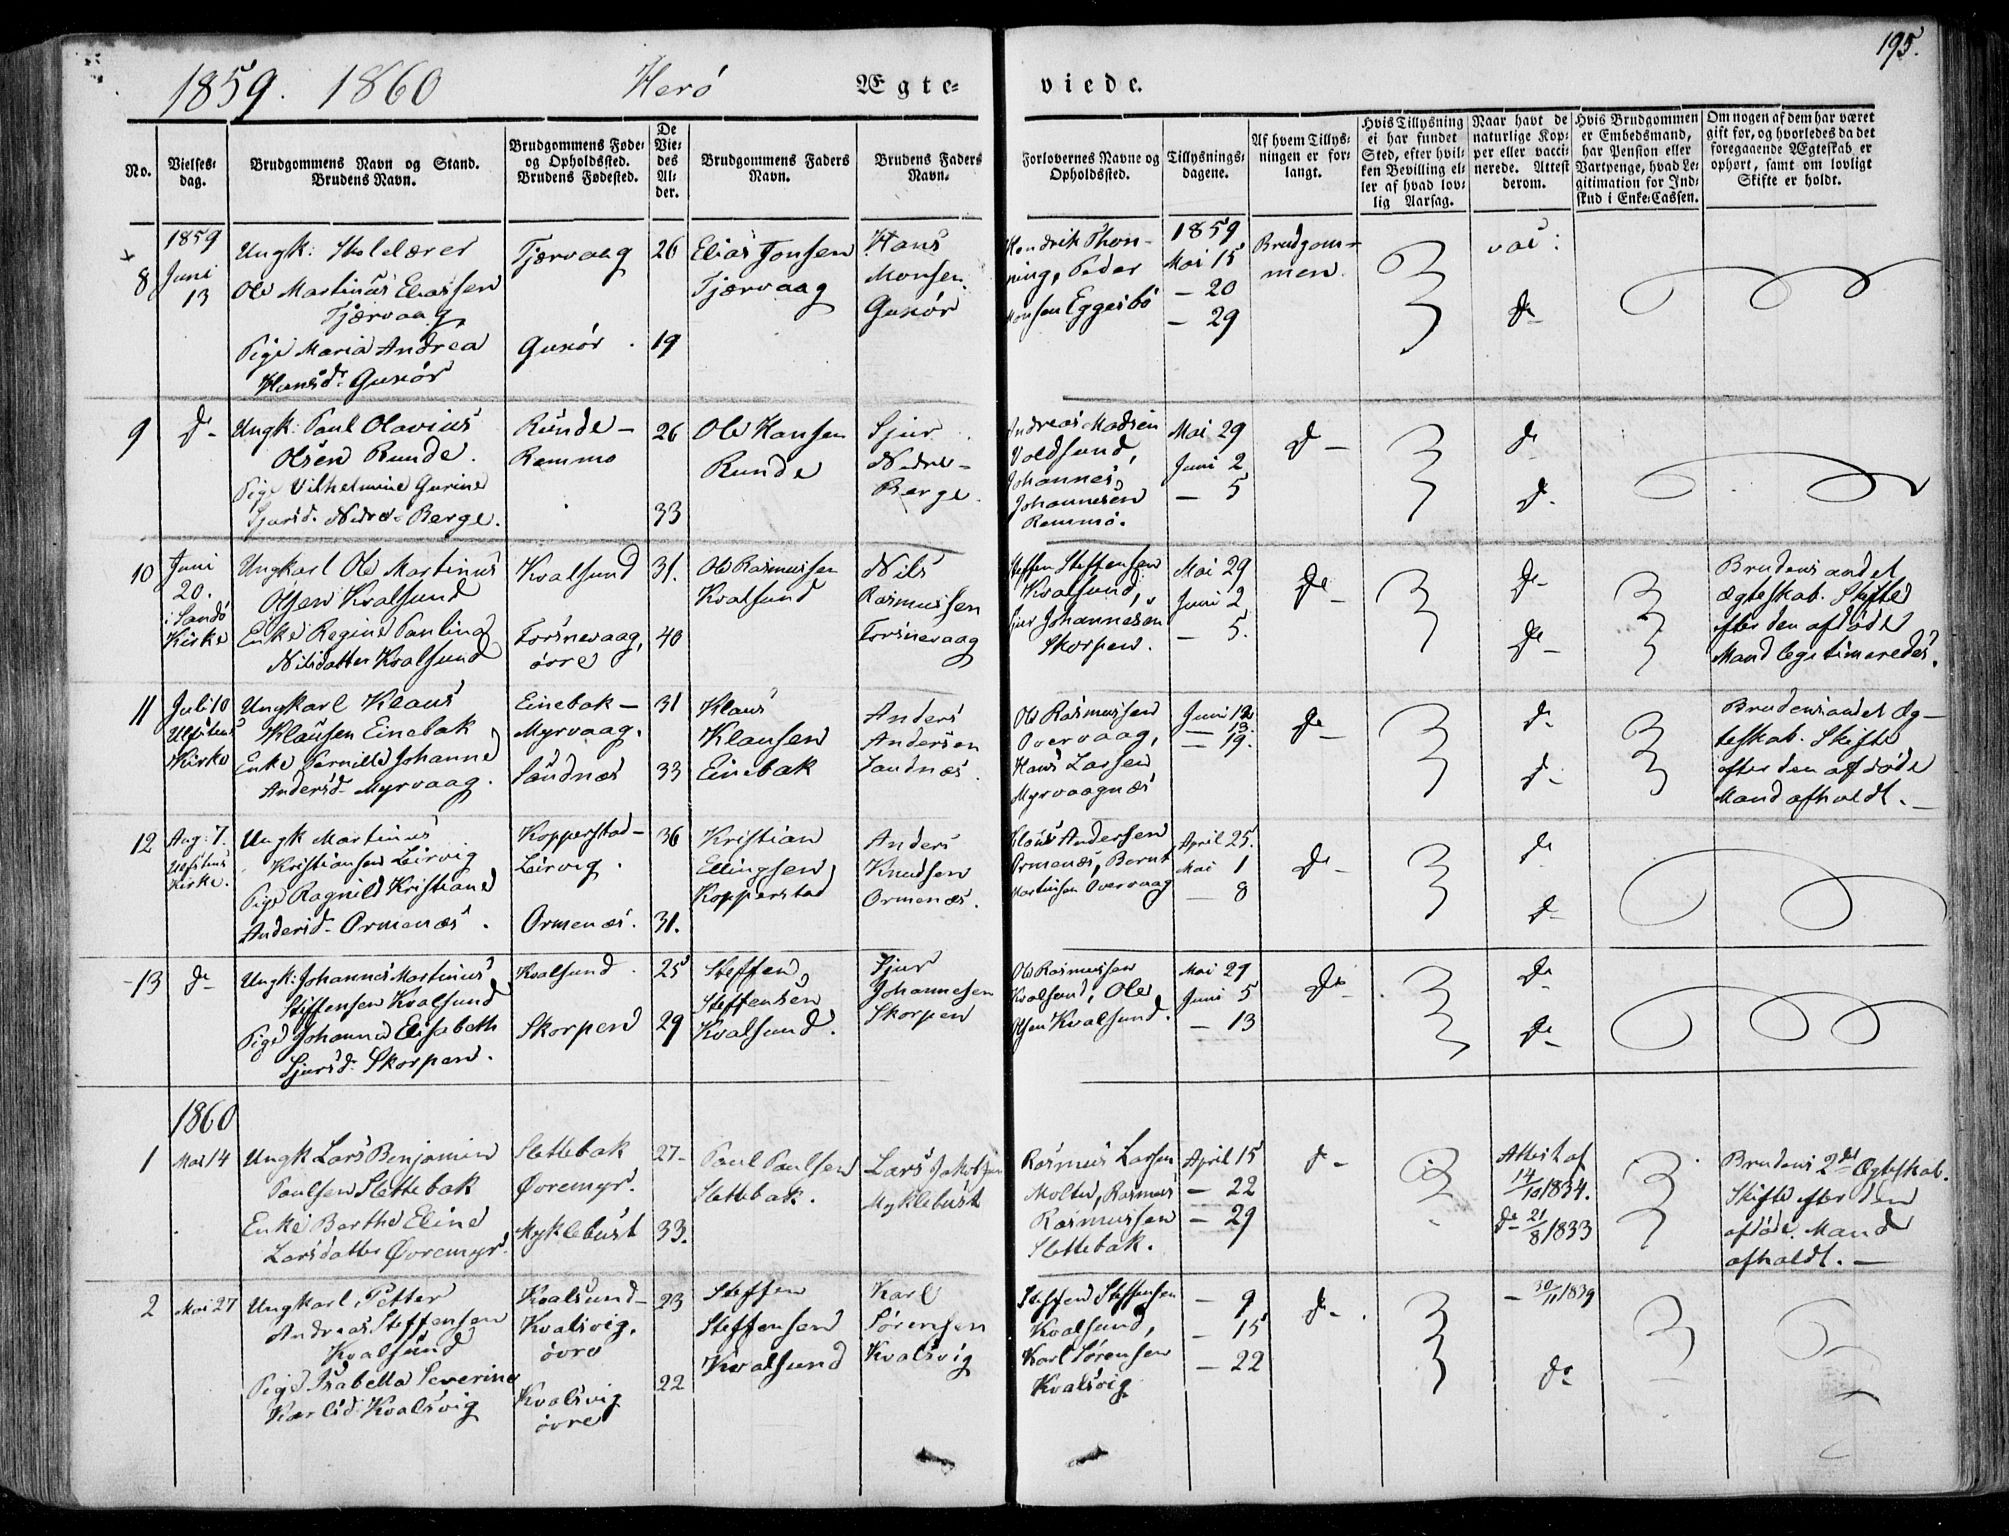 195.
1859. 1860 Herö Ægte-viede.
No.
Vielses-dag.
Brudgommens Navn og Stand. Brudens Navn.
Brudgommens Føde- og Opholdssted. Brudens Fødested.
De Vie-des Al-der.
Brudgommens Faders Navn.
Brudens Faders Navn.
Forlovernes Navne og Opholdssted.
Tillysnings-dagene.
Af hvem Tillys-ningen er for-langt.
Hvis Tillysning ei har fundet Sted, efter hvil-ken Bevilling el-ler af hvad lov-lig Aarsag.
Naar havt de naturlige Kop-per eller vacci-nerede. Attest derom.
Hvis Brudgommen er Embedsmand, har Pension eller Vartpenge, hvad Le-gitimation for Ind-skud i Enke-Cassen.
Om nogen af dem har været gift før, og hvorledes da det foregaaende Ægteskab er ophørt, samt om lovligt Skifte er holdt.
8
1859
Juni
13
Ungk: Skolelærer
Ole Martinus Eliassen
Tjærvaag
Pige Maria Andrea
Hansd. Guxör
Tjærvaag
Guxör
26
19
Elias Jonsen
Tjærvaag
Hans
Monsen
Guxör
Hendrik Thon-
ning, Peder
Monsen Eggesbö
1859
Mai 15
— 20
— 29
Brudgom-
men
vac:
do
9
do
Ungk: Paul Olavius
Olsen Runde.
Pige Vilhelmine Gurine
Sjursd. Nedre-Berge.
Runde-
Remmo
26
33
Ole Hansen
Runde
Sjur
Nedre-
Berge.
Andreas Madsen
Voldsund,
Johannes
Johannesen
Remmö.
Mai 29
Juni 2
— 5
do
do
do
10
Juni
20.
i Sandö
Kirke
Ungkarl Ole Martinus
Olsen Kvalsund
Enke Regine Paulina
Nilsdatter Kvalsund
Kvalsund
Torsnevaag,
övre
31.
40
Ole Rasmussen
Kvalsund
Nils
Rasmussen
Torsnevaag
Steffen Steffensen
Kvalsund,
Sjur Johannesen
Skorpen.
Mai 29
Juni 2
— 5.
do
do
do
Brudens andet
Ægteskab. Skifte
efter den afdöde
Mand legitimeredes.
11
Juli 10
Ulfstens
Kirke
Ungkarl Klaus
Klausen Einebak
Enke Pernille Johanne
Andersd. Myrvaag.
Einebak-
Myrvaag.
Sandnæs
31
33
Klaus
Klausen
Einebak
Anders
Andersen
Sandnæs.
Ole Rasmussen
Overvaag,
Hans Larsen
Myrvaagnæs
Juni 12
— 13.
— 19.
do
do
do
Brudens andet Æg-
teskab. Skifte
efter den afdöde
Mand afholdt.
12
Aug: 7.
Ulfstens
Kirke.
Ungk Martinus
Kristiansen Leirvig
Pige Ragnild Kristiane
Andersd. Ormenæs.
Kopperstad-
Leirvig.
Ormenæs.
36
31.
Kristian
Ellingsen
Kopperstad
Anders
Knudsen
Ormenæs.
Klaus Andersen
Ormenæs, Bernt
Martinsen Overvaag
April 25.
Mai 1
— 8
do
do
do
13
do
Ungk: Johannes Martinus
Steffensen Kvalsund
Pige Johanna Elisabeth
Sjursd. Skorpen.
Kvalsund.
Skorpen
25
29
Steffen
Steffensen
Kvalsund.
Sjur
Johannesen
Skorpen
Ole Rasmussen
Kvalsund, Ole
Olsen Kvalsund.
Mai 29
Juni 5
— 13
do
do
do
1860
1
Mai 14
Ungk Lars Benjamin
Paulsen Slettebak
Enke Berthe Eline
Larsdatter Övremyr.
Slettebak
Övremyr.
Myklebust
27
33.
Paul Paulsen
Slettebak.
Lars Jakobsen
Myklebust
Rasmus Larsen
Moltu, Rasmus
Rasmussen
Slettebak.
April 15
— 22
— 29
do
Attest af
14/10 1834.
do 21/8 1833
Brudens 2det Ægteskab.
Skifte efter den
afdöde Mand
afholdt.
2
Mai 27
Ungkarl Petter
Andreas Steffensen
Kvalsund
Pige Isabella Severine
Karlsd. Kvalsvig
Kvalsund-
Kvalsvig,
övre
Kvalsvig
övre
23
22
Steffen
Steffensen
Kvalsund
Karl
Sörensen
Kvalsvig
Steffen Steffensen
Kvalsund,
Karl Sörensen
Kvalsvig
— 9
— 15
— 22
do
— 30/11 1839
do